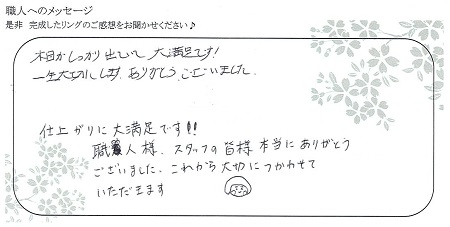 職人へのメッセージ
是非 完成したリングのご感想をお聞かせください♪
木目がしっかり出ていて大満足です!
一生大切にします。ありがとうございました。
仕上がりに大満足です!!
職人様、スタッフの皆様本当にありがとう
ございました。これから大切につかわせて
いただきます